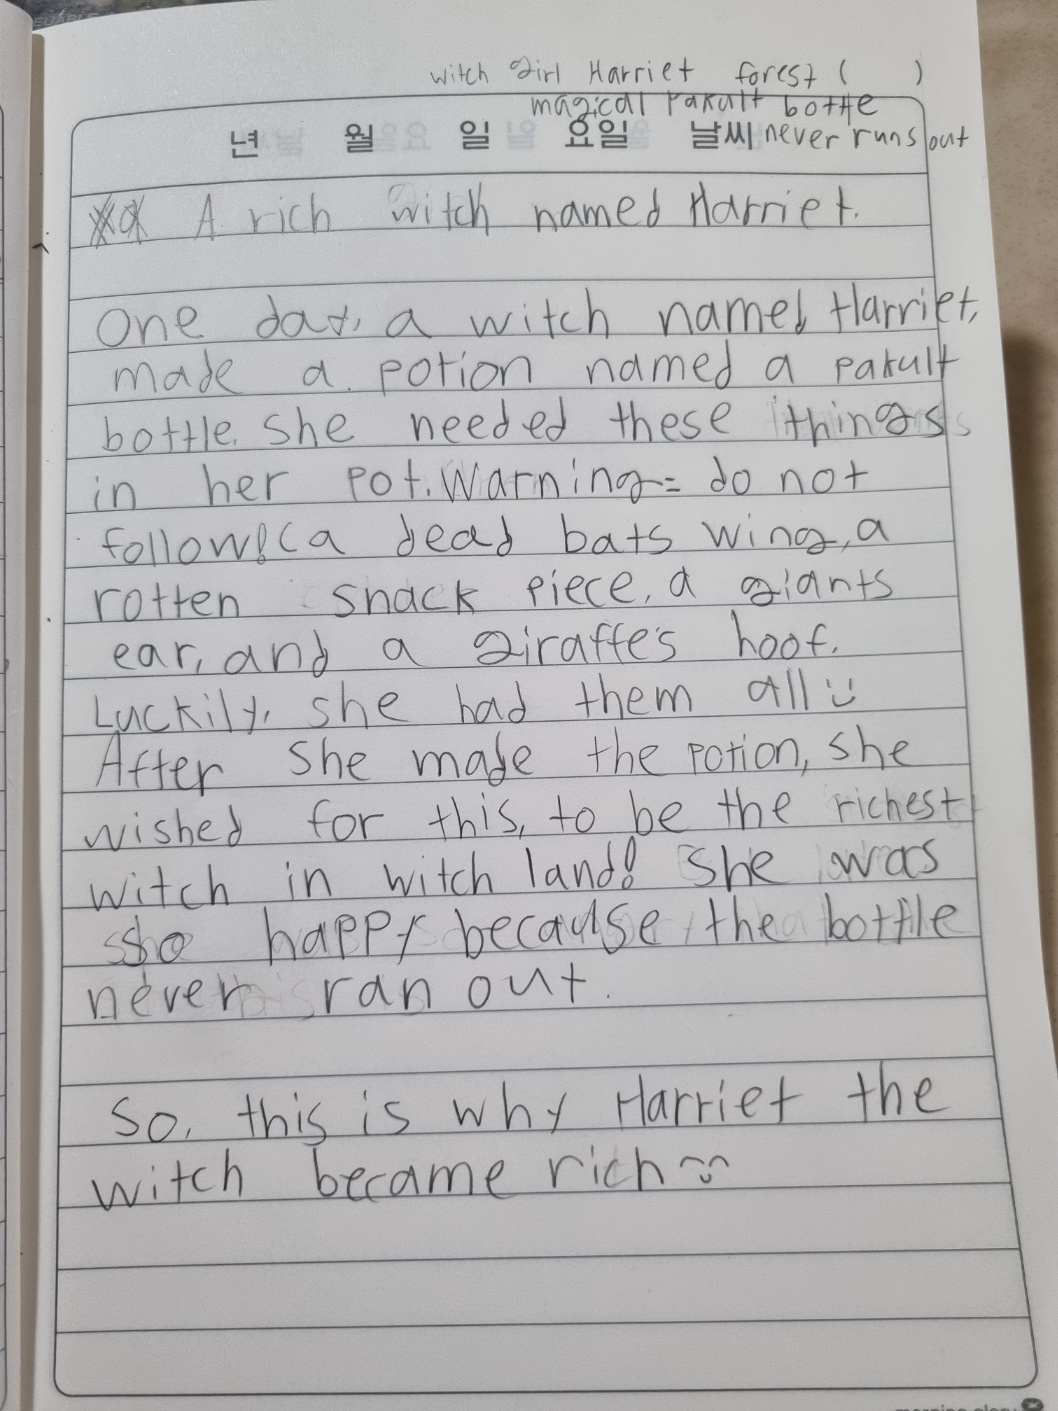 witch girl Harriet forest ( )
magical Pakult bottle
년 월 일 요일 날씨 never runs out
A rich witch named Harriet.
One day, a witch named Harriet,
made a potion named a pakult
bottle. She needed these things
in her pot. Warning= do not
follow! (a dead bats wing, a
rotten snack piece, a giants
ear, and a giraffe's hoof.
Luckily, she had them all :)
After she made the potion, she
wished for this, to be the richest
witch in witch land! She was
so happy because the bottle
never ran out.
So, this is why Harriet the
witch became rich